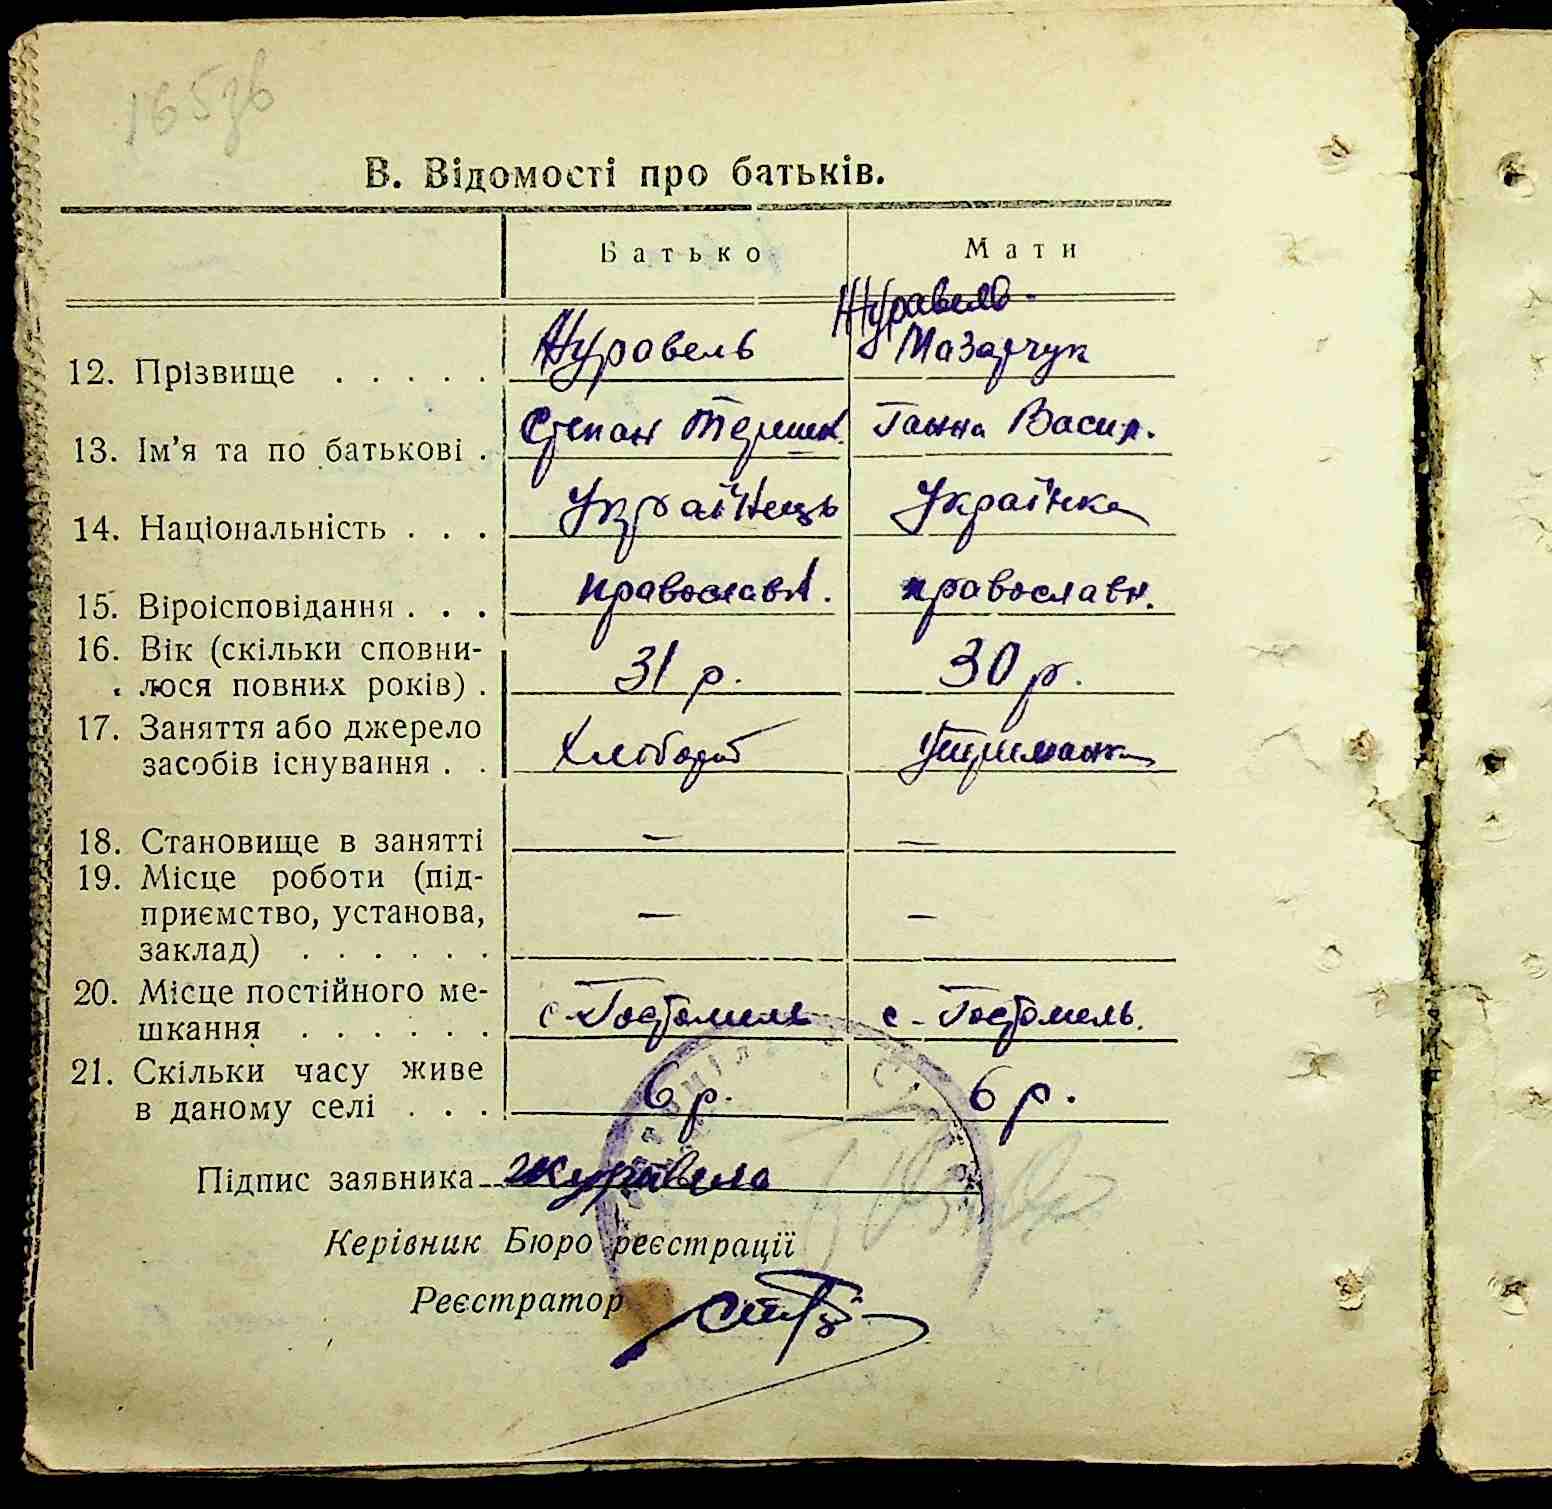 165зв
В. Відомості про батьків.
Батько Мати
Журавель
12. Прізвище . . . . . Журавель Мазарчук
13. Ім'я та по батькові . Степан Терешк. Ганна Васил.
14. Національність . . . Українець Українка
15. Віроісповідання . . . православн. православн.
16. Вік (скільки сповни-
лося повних років) . 31 р. 30 р.
17. Заняття або джерело
засобів існування . . Хлібороб Утриманка
18. Становище в занятті — —
19. Місце роботи (під-
приємство, установа,
заклад) . . . . . . — —
20. Місце постійного ме-
шкання . . . . . . с-Гостомель с-Гостомель.
21. Скільки часу живе
в даному селі . . . 6 р. 6 р.
Підпис заявника
Керівник Бюро реєстрації
Реєстратор